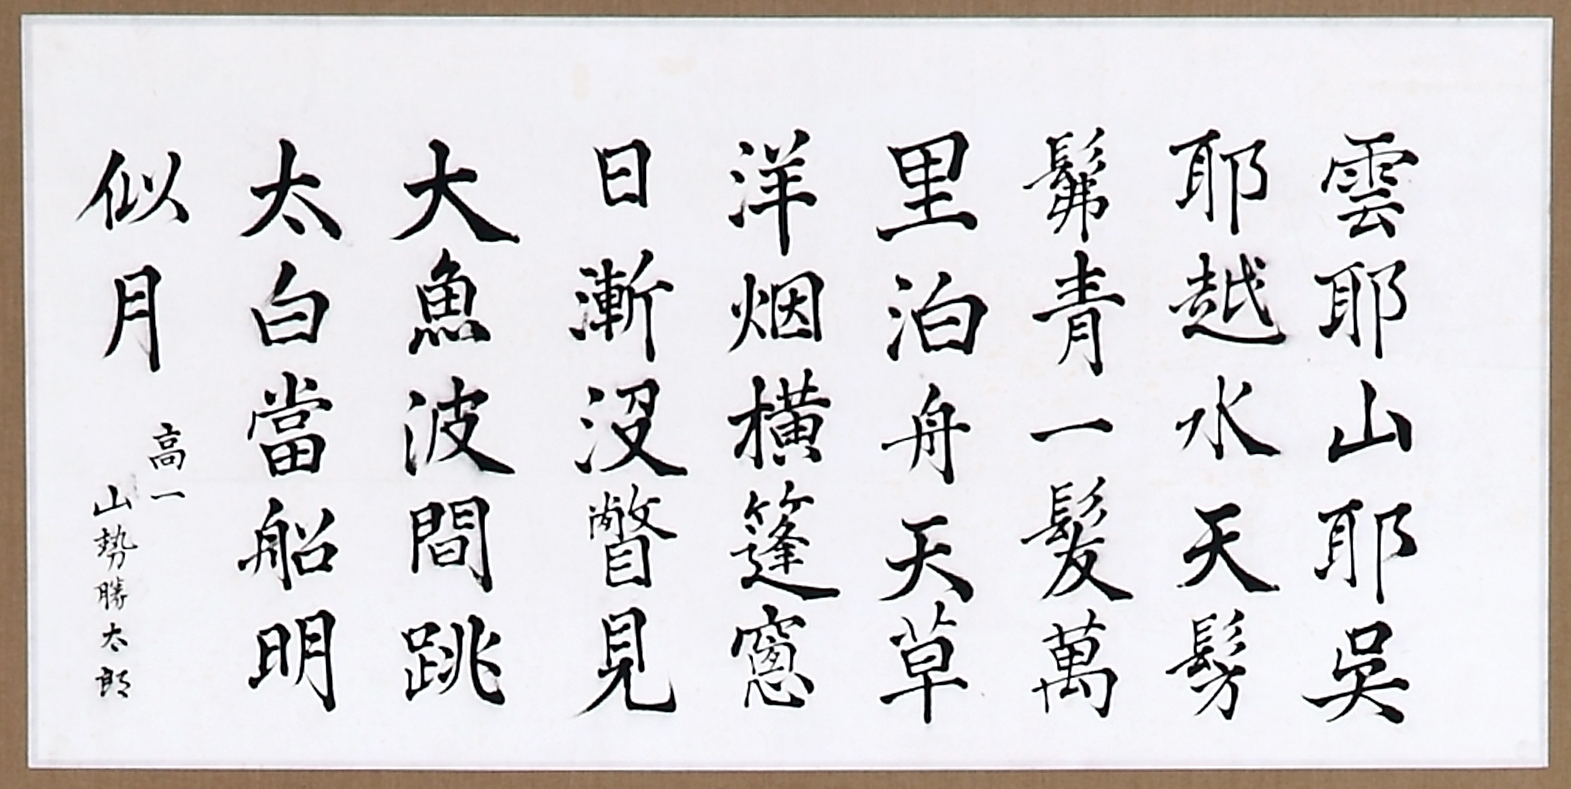 雲耶山耶呉
耶越水天髣
髴青一髪萬
里泊舟天草
洋烟横篷窻
日漸没瞥見
大魚波間跳
太白當船明
似月
高一
山勢勝太郎